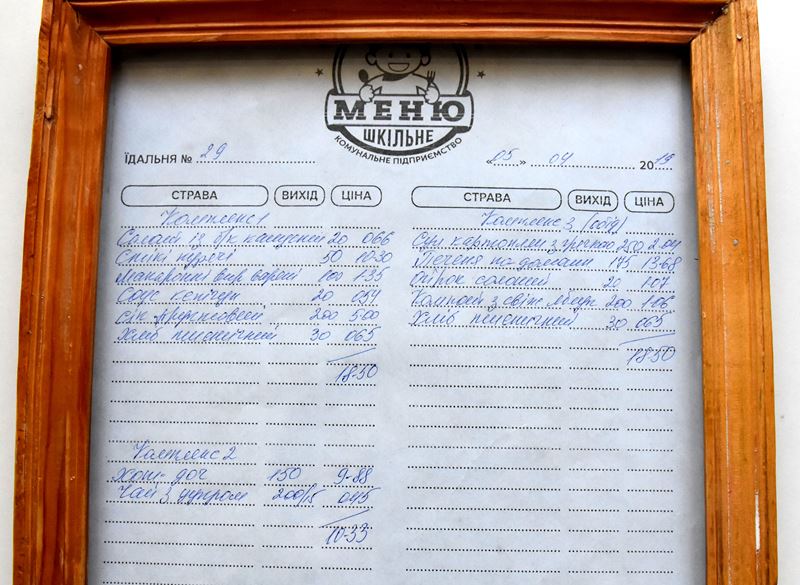 МЕНЮ
ШКІЛЬНЕ
КОМУНАЛЬНЕ ПІДПРИЄМСТВО
ЇДАЛЬНЯ № 29
«05» 04 2019
СТРАВА ВИХІД ЦІНА
Комплекс 1
Салат із б/к капусти 20 066
Стіки курячі 50 10-30
Макаронні вир. варені 100 1-35
Соус кетчуп 20 054
Сік фруктовий 200 5-00
Хліб пшеничний 30 065
18-50
Комплекс 2
Хот-дог 150 9-88
Чай з цукром 200/15 045
10-33
СТРАВА ВИХІД ЦІНА
Комплекс 3 (обід)
Суп картоплян з 250 2-04
Печеня по домашн 145 13-68
Огірок солоний 20 1-07
Компот з свіж. яблук 200 1-06
Хліб пшеничний 30 065
18-50